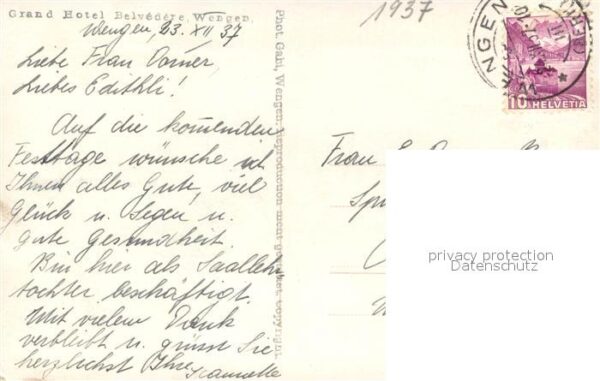 Grand Hotel Belvédère, Wengen.
Wengen, 23. XII 37
1937
Liebe Frau
Liebes Edithli!
Auf die komenden
Festtage wünsche ich
Ihnen alles Gute, viel
Glück u. Segen u.
gute Gesundheit.
Bin hier als Saalleh
tochter beschäftigt.
Mit vielem Dank
verbleibt u. grüsst Sie
herzlichst Ihre
Jeannette
Phot. Gabi, Wengen. Reproduction ment. copyright.
Frau E.
WENGEN
10 HELVETIA
privacy protection
Datenschutz